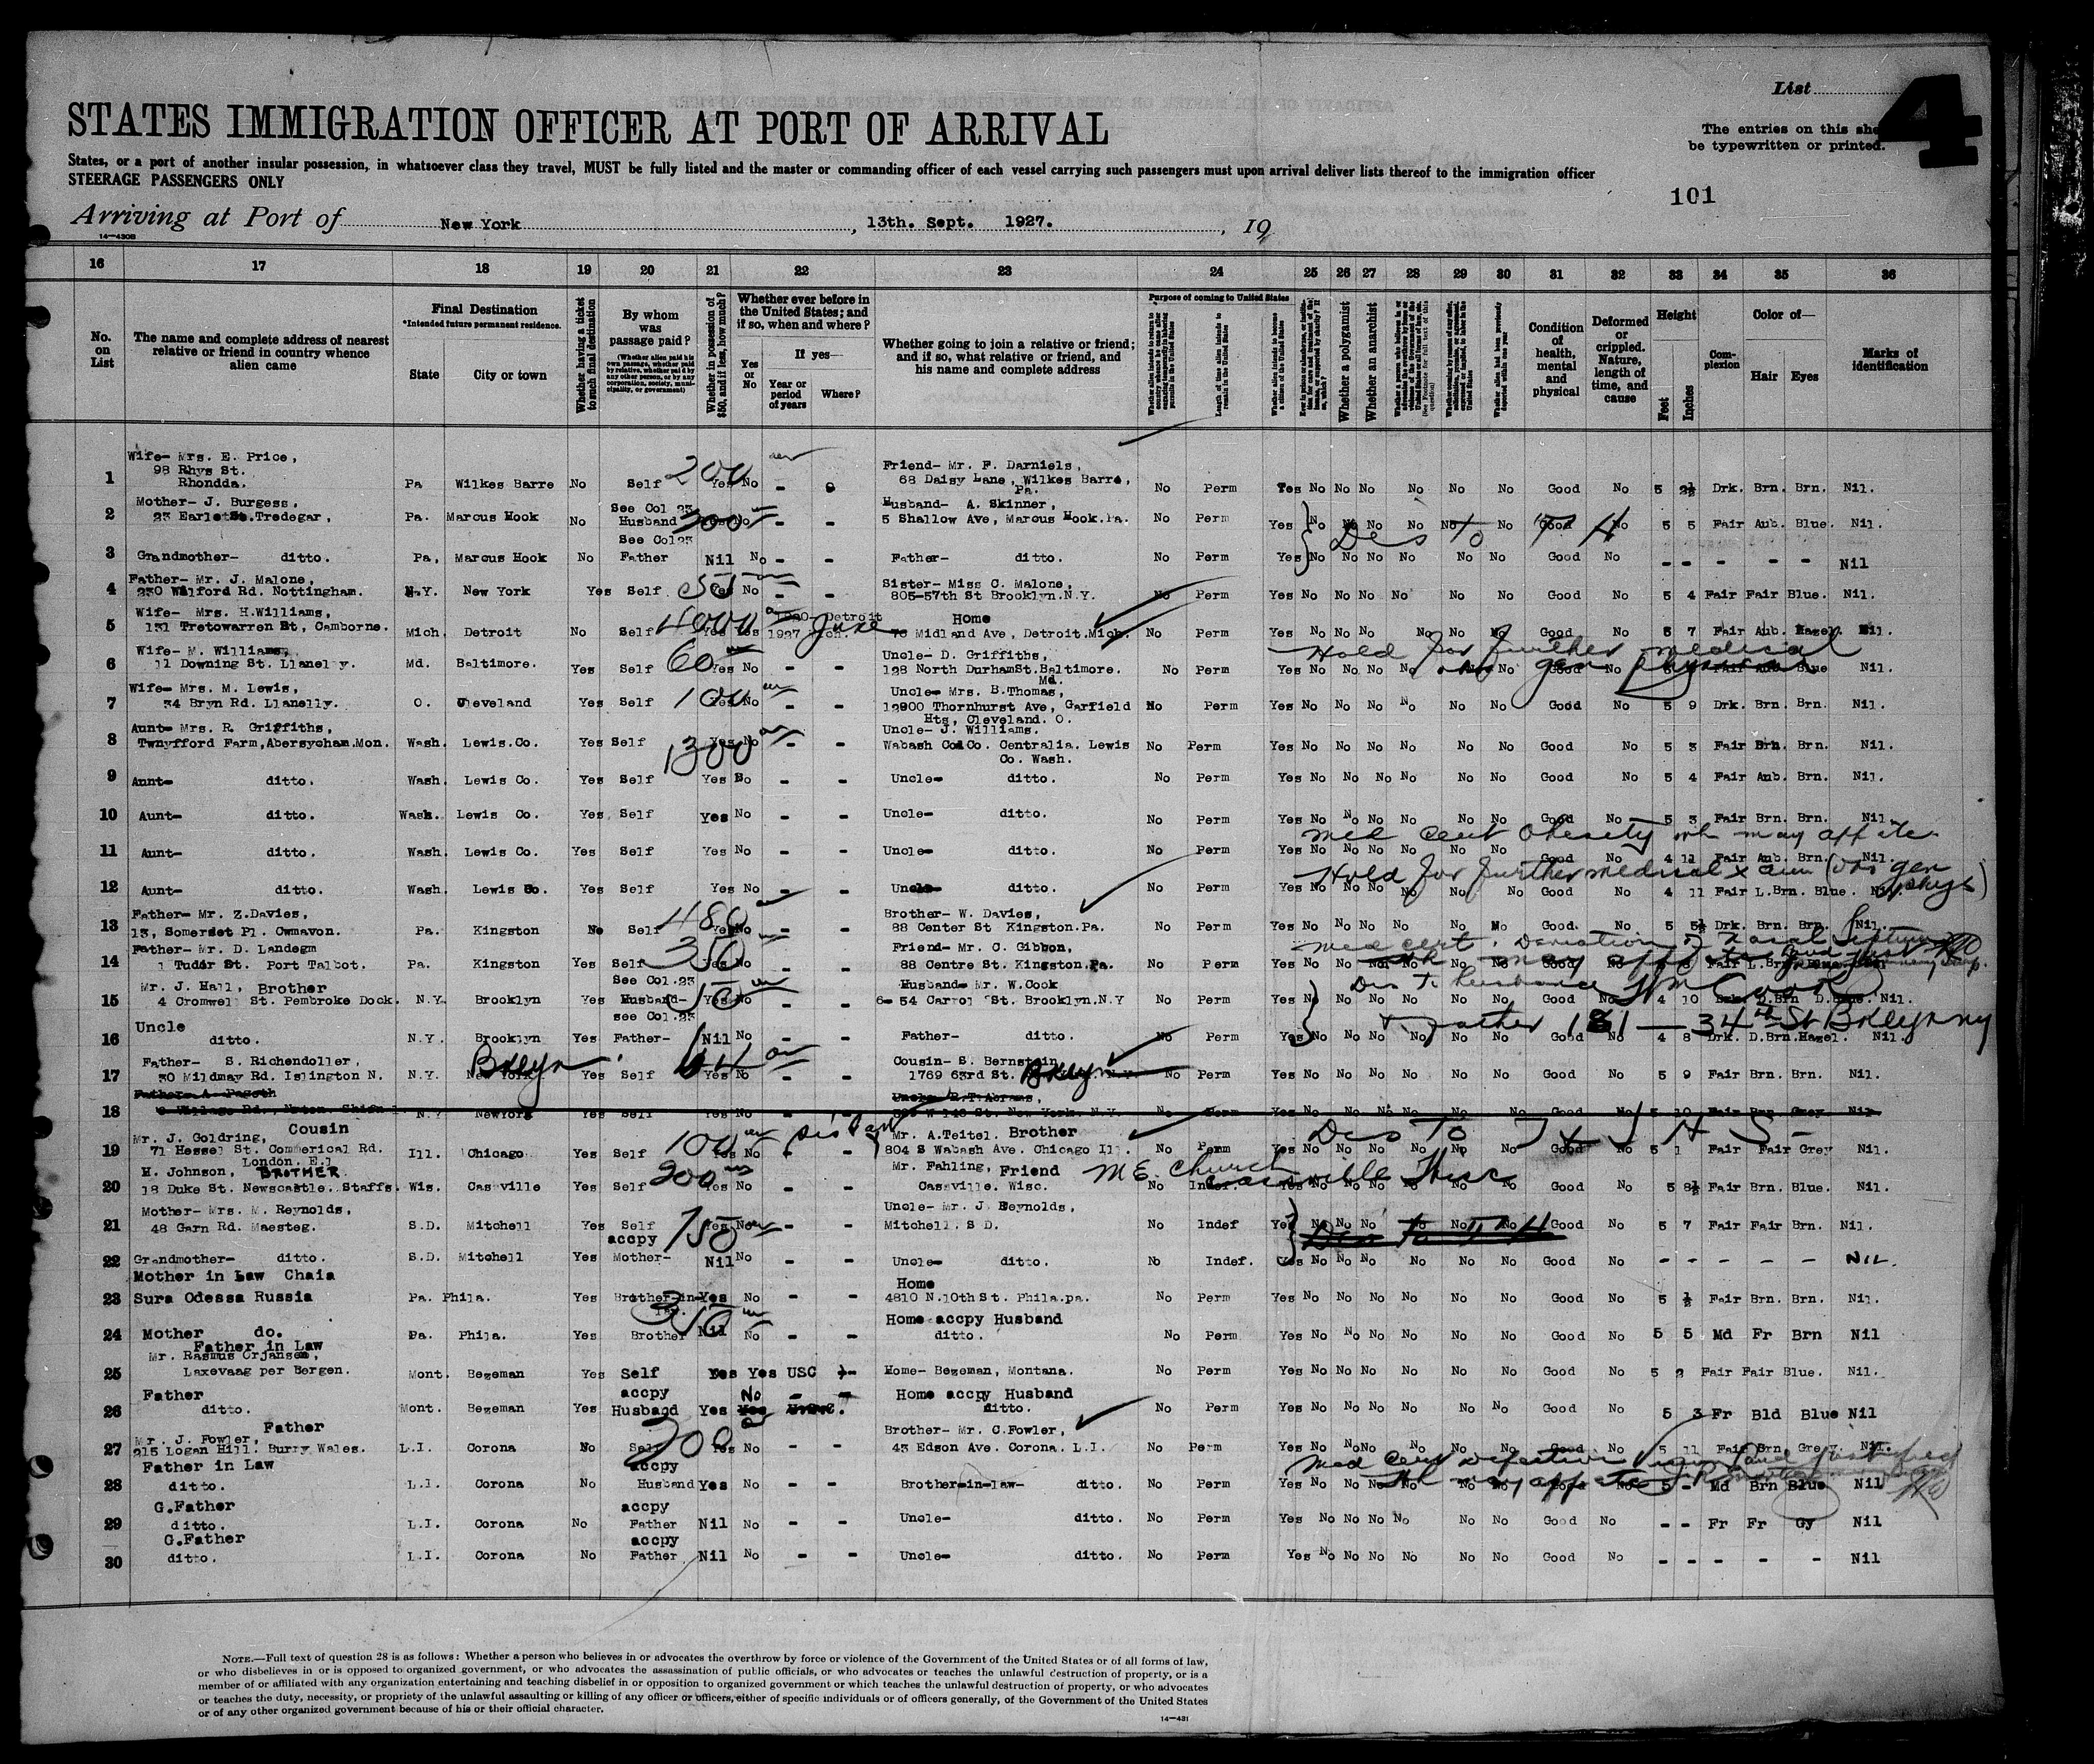 List
4
STATES IMMIGRATION OFFICER AT PORT OF ARRIVAL
The entries on this she
be typewritten or printed.
States, or a port of another insular possession, in whatsoever class they travel, MUST be fully listed and the master or commanding officer of each vessel carrying such passengers must upon arrival deliver lists thereof to the immigration officer
STEERAGE PASSENGERS ONLY
101
Arriving at Port of New York, 13th. Sept. 1927. , 19
14—430B
16 17 18 19 20 21 22 23 24 25 26 27 28 29 30 31 32 33 34 35 36
No. on List
The name and complete address of nearest relative or friend in country whence alien came
Final Destination
*Intended future permanent residence.
State
City or town
Whether having a ticket to such final destination
By whom was passage paid?
(Whether alien paid his own passage, whether paid by relative, whether paid by any other person, or by any corporation, society, municipality, or government)
Whether in possession of $50, and if less, how much?
Whether ever before in the United States; and if so, when and where?
Yes or No
If yes—
Year or period of years
Where?
Whether going to join a relative or friend; and if so, what relative or friend, and his name and complete address
Purpose of coming to United States
Length of time alien intends to remain in the United States
Whether alien intends to become a citizen of the United States
Whether a polygamist
Whether an anarchist
Condition of health, mental and physical
Deformed or crippled. Nature, length of time, and cause
Height
Feet
Inches
Complexion
Color of—
Hair
Eyes
Marks of identification
1 Wife- Mrs. E. Price, 98 Rhys St. Rhondda. Pa Wilkes Barre No Self 200 Yes No - Friend- Mr. F. Darniels, 68 Daisy Lane, Wilkes Barre, Pa. No Perm Yes No No No No No No Good No 5 2½ Drk. Brn. Brn. Nil.
2 Mother- J. Burgess, 23 Earl St. Tredegar, Pa. Marcus Hook No See Col 23 Husband 300 - - Husband- A. Skinner, 5 Shallow Ave, Marcus Hook.Pa. No Perm Yes No No No No No No Good No 5 5 Fair Aub. Blue. Nil.
Des to T H
3 Grandmother- ditto. Pa, Marcus Hook No See Col23 Father Nil No - - Father- ditto. No Perm Yes No No No No No No Good No - - - - - Nil
4 Father- Mr. J. Malone, 230 Wilford Rd. Nottingham. N.Y. New York Yes Self 55 Yes No - - Sister- Miss C. Malone, 805-57th St Brooklyn.N.Y. No Perm Yes No No No No No No Good No 5 4 Fair Fair Blue. Nil.
5 Wife- Mrs. H.Williams, 131 Tretowarren St, Camborne. Mich. Detroit No Self 4000 Yes Yes 1920 1927 June Detroit Mich. Home 76 Midland Ave, Detroit.Mich. No Perm Yes No No No No No No Good No 5 7 Fair Aub. Hazel. Nil.
Hold for further medical
6 Wife- M. Williams, 11 Downing St. Llanelly. Md. Baltimore. Yes Self 60 Yes No - - Uncle- D. Griffiths, 128 North DurhamSt.Baltimore. Md. No Perm Yes No No No No No No Good No Fair Aub. Blue Nil.
gen physical
7 Wife- Mrs. M. Lewis, 34 Bryn Rd. Llanelly. O. Cleveland Yes Self 100 Yes No - - Uncle- Mrs. B.Thomas, 12900 Thornhurst Ave, Garfield Hts, Cleveland. O. No Perm Yes No No No No No No Good No 5 9 Drk. Brn. Brn. Nil.
8 Aunt- Mrs. R. Griffiths, Twnyfford Farm,Abersychan.Mon. Wash. Lewis.Co. Yes Self 1300 Yes No - - Uncle- J. Williams. Wabash Col Co. Centralia. Lewis Co. Wash. No Perm Yes No No No No No No Good No 5 3 Fair Brn. Brn. Nil.
9 Annt- ditto. Wash. Lewis Co. Yes Self Yes No - - Uncle- ditto. No Perm Yes No No No No No No Good No 5 4 Fair Aub. Brn. Nil.
10 Aunt- ditto. Wash. Lewis Co. Yes Self Yes No - - Uncle- ditto. No Perm Yes No No No No No No Good No 5 3 Fair Brn. Brn. Nil.
med cert Obesity wh may aff
11 Aunt- ditto. Wash. Lewis Co. Yes Self Yes No - - Uncle- ditto. No Perm Yes No No No No No No Good No 4 11 Fair Aub. Brn. Nil.
Hold for further medical exam gen phys)
12 Aunt- ditto. Wash. Lewis Co. Yes Self Yes No - - Uncle- ditto. No Perm Yes No No No No No No Good No 4 11 Fair L.Brn. Blue.
13 Father- Mr. Z.Davies, 13, Somerset Pl. Cwmavon. Pa. Kingston No Self 480 Yes No - - Brother- W. Davies, 88 Center St Kingston.Pa. No Perm Yes No No No No No No Good. No 5 5½ Drk. Brn. Brn. Nil.
med cert. Deviation of nasal septum
14 Father- Mr. D. Landegm 1 Tudor St. Port Talbot. Pa. Kingston Yes Self 350 Yes No - - Friend- Mr. C. Gibbon, 88 Centre St. Kingston.Pa. No Perm Yes No No No No No No Good No Fair L.Brn
15 Mr. J. Hall, Brother 4 Cromwell St. Pembroke Dock. N.Y. Brooklyn Yes See Col.23 Husband- 150 Yes No - - Husband- Mr. W.Cook 6- 54 Carrol St. Brooklyn.N.Y No Perm Yes No Good No 4 10 Drk. D.Brn Nil.
Des To husband Wm Cook
16 Uncle ditto. N.Y. Brooklyn Yes see Col.23 Father- Nil No - - Father- ditto. No Perm Yes No No No No No No Good No 4 8 Drk. D.Brn.Hazel. Nil.
father 181—34th St Bklyn ny
17 Father- S. Richendoller, 30 Mildmay Rd. Islington N. N.Y. New York Bklyn Yes Self 64 Yes No - - Cousin- S. Bernstein 1769 63rd St. Bklyn N.Y. No Perm Yes No No No No No No Good No 5 9 Fair Brn. Brn. Nil.
18 N.Y. NewYork Yes Self Yes No - - Uncle R.T.Abrams, W 148 St. New York. N.Y. No Perm Yes No No No No No No Good No 5 10 Fair Brn. Grey Nil
19 Mr. J. Goldring, Cousin 71 Hessel St. Commerical Rd. London. E.1 Ill. Chicago Yes Self 100 Yes No - - Mr. A.Teitel. Brother 804 S Wabash Ave. Chicago Ill. No Perm Yes No No No No No No Good No 5 1 Fair Fair Grey Nil.
20 H. Johnson, BROTHER. 18 Duke St. Newscastle. Staffs. Wis. Casville Yes Self 200 Yes No - - Mr. Fahling, Friend Casville. Wisc. No Indef. Yes No No No No No No Good No 5 8½ Fair Brn. Blue. Nil.
M E Church Cassville Wisc
21 Mother- Mrs. M. Reynolds, 48 Garn Rd. Maesteg. S.D. Mitchell Yes Self 750 Yes No - - Uncle- Mr. J Reynolds, Mitchell. S D. No Indef Yes No No No No No No Good No 5 7 Fair Fair Brn. Nil.
Des to T H
22 Grandmother- ditto. S.D. Mitchell Yes accpy Mother- Nil No - - Uncle- ditto. No Indef. Yes No No No No No No Good No - - - - - NIL.
23 Mother in Law Chaia Sura Odessa Russia Pa. Phila. Yes Brother-in-Law. 350 Yes No - - Home 4810 N.10th St. Phila.pa. No Perm Yes No No No No No No Good No 5 ½ Fair Brn. Brn. Nil.
24 Mother do. Pa. Phila. Yes Brother Nil No - - Home accpy Husband ditto. No Perm Yes No No No No No No Good No 5 5 Md Fr Brn Nil
25 Father in Law Mr. Rasmus Orjansen, Laxevaag per Bergen. Mont. Bezeman Yes Self Yes Yes USC Home- Bezeman, Montana. No Perm Yes No No No No No No Good No 5 2 Fair Fair Blue. Nil.
26 Father ditto. Mont. Bezeman Yes accpy Husband Yes No - - Home accpy Husband ditto. No Perm Yes No No No No No No Good No 5 3 Fr Bld Blue Nil
27 Father Mr. J. Fowler, 215 Logan Hill. Burry Wales. L.I. Corona No Self 200 Yes No - - Brother- Mr. C.Fowler, 43 Edson Ave. Corona. L.I. No Perm Yes No No No No No No Good No 5 11 Fair Brn Grey. Nil.
med cert defective vision
28 Father in Law ditto. L.I. Corona No accpy Husband Yes No - - Brother-in-law- ditto. No Perm Yes No No No No No No Good No 5 - Md Brn Blue Nil
29 G.Father ditto. L.I. Corona No accpy Father Nil No - - Uncle- ditto. No Perm Yes No No No No No No Good No - - Fr Fr Gy Nil
30 G.Father ditto. L.I. Corona No accpy Father Nil No - - Uncle- ditto. No Perm Yes No No No No No No Good No - - - - - Nil
NOTE.—Full text of question 28 is as follows: Whether a person who believes in or advocates the overthrow by force or violence of the Government of the United States or of all forms of law,
or who disbelieves in or is opposed to organized government, or who advocates the assassination of public officials, or who advocates or teaches the unlawful destruction of property, or is a
member of or affiliated with any organization entertaining and teaching disbelief in or opposition to organized government or which teaches the unlawful destruction of property, or who advocates
or teaches the duty, necessity, or propriety of the unlawful assaulting or killing of any officer or officers, either of specific individuals or of officers generally, of the Government of the United States
or of any other organized government because of his or their official character.
14—431